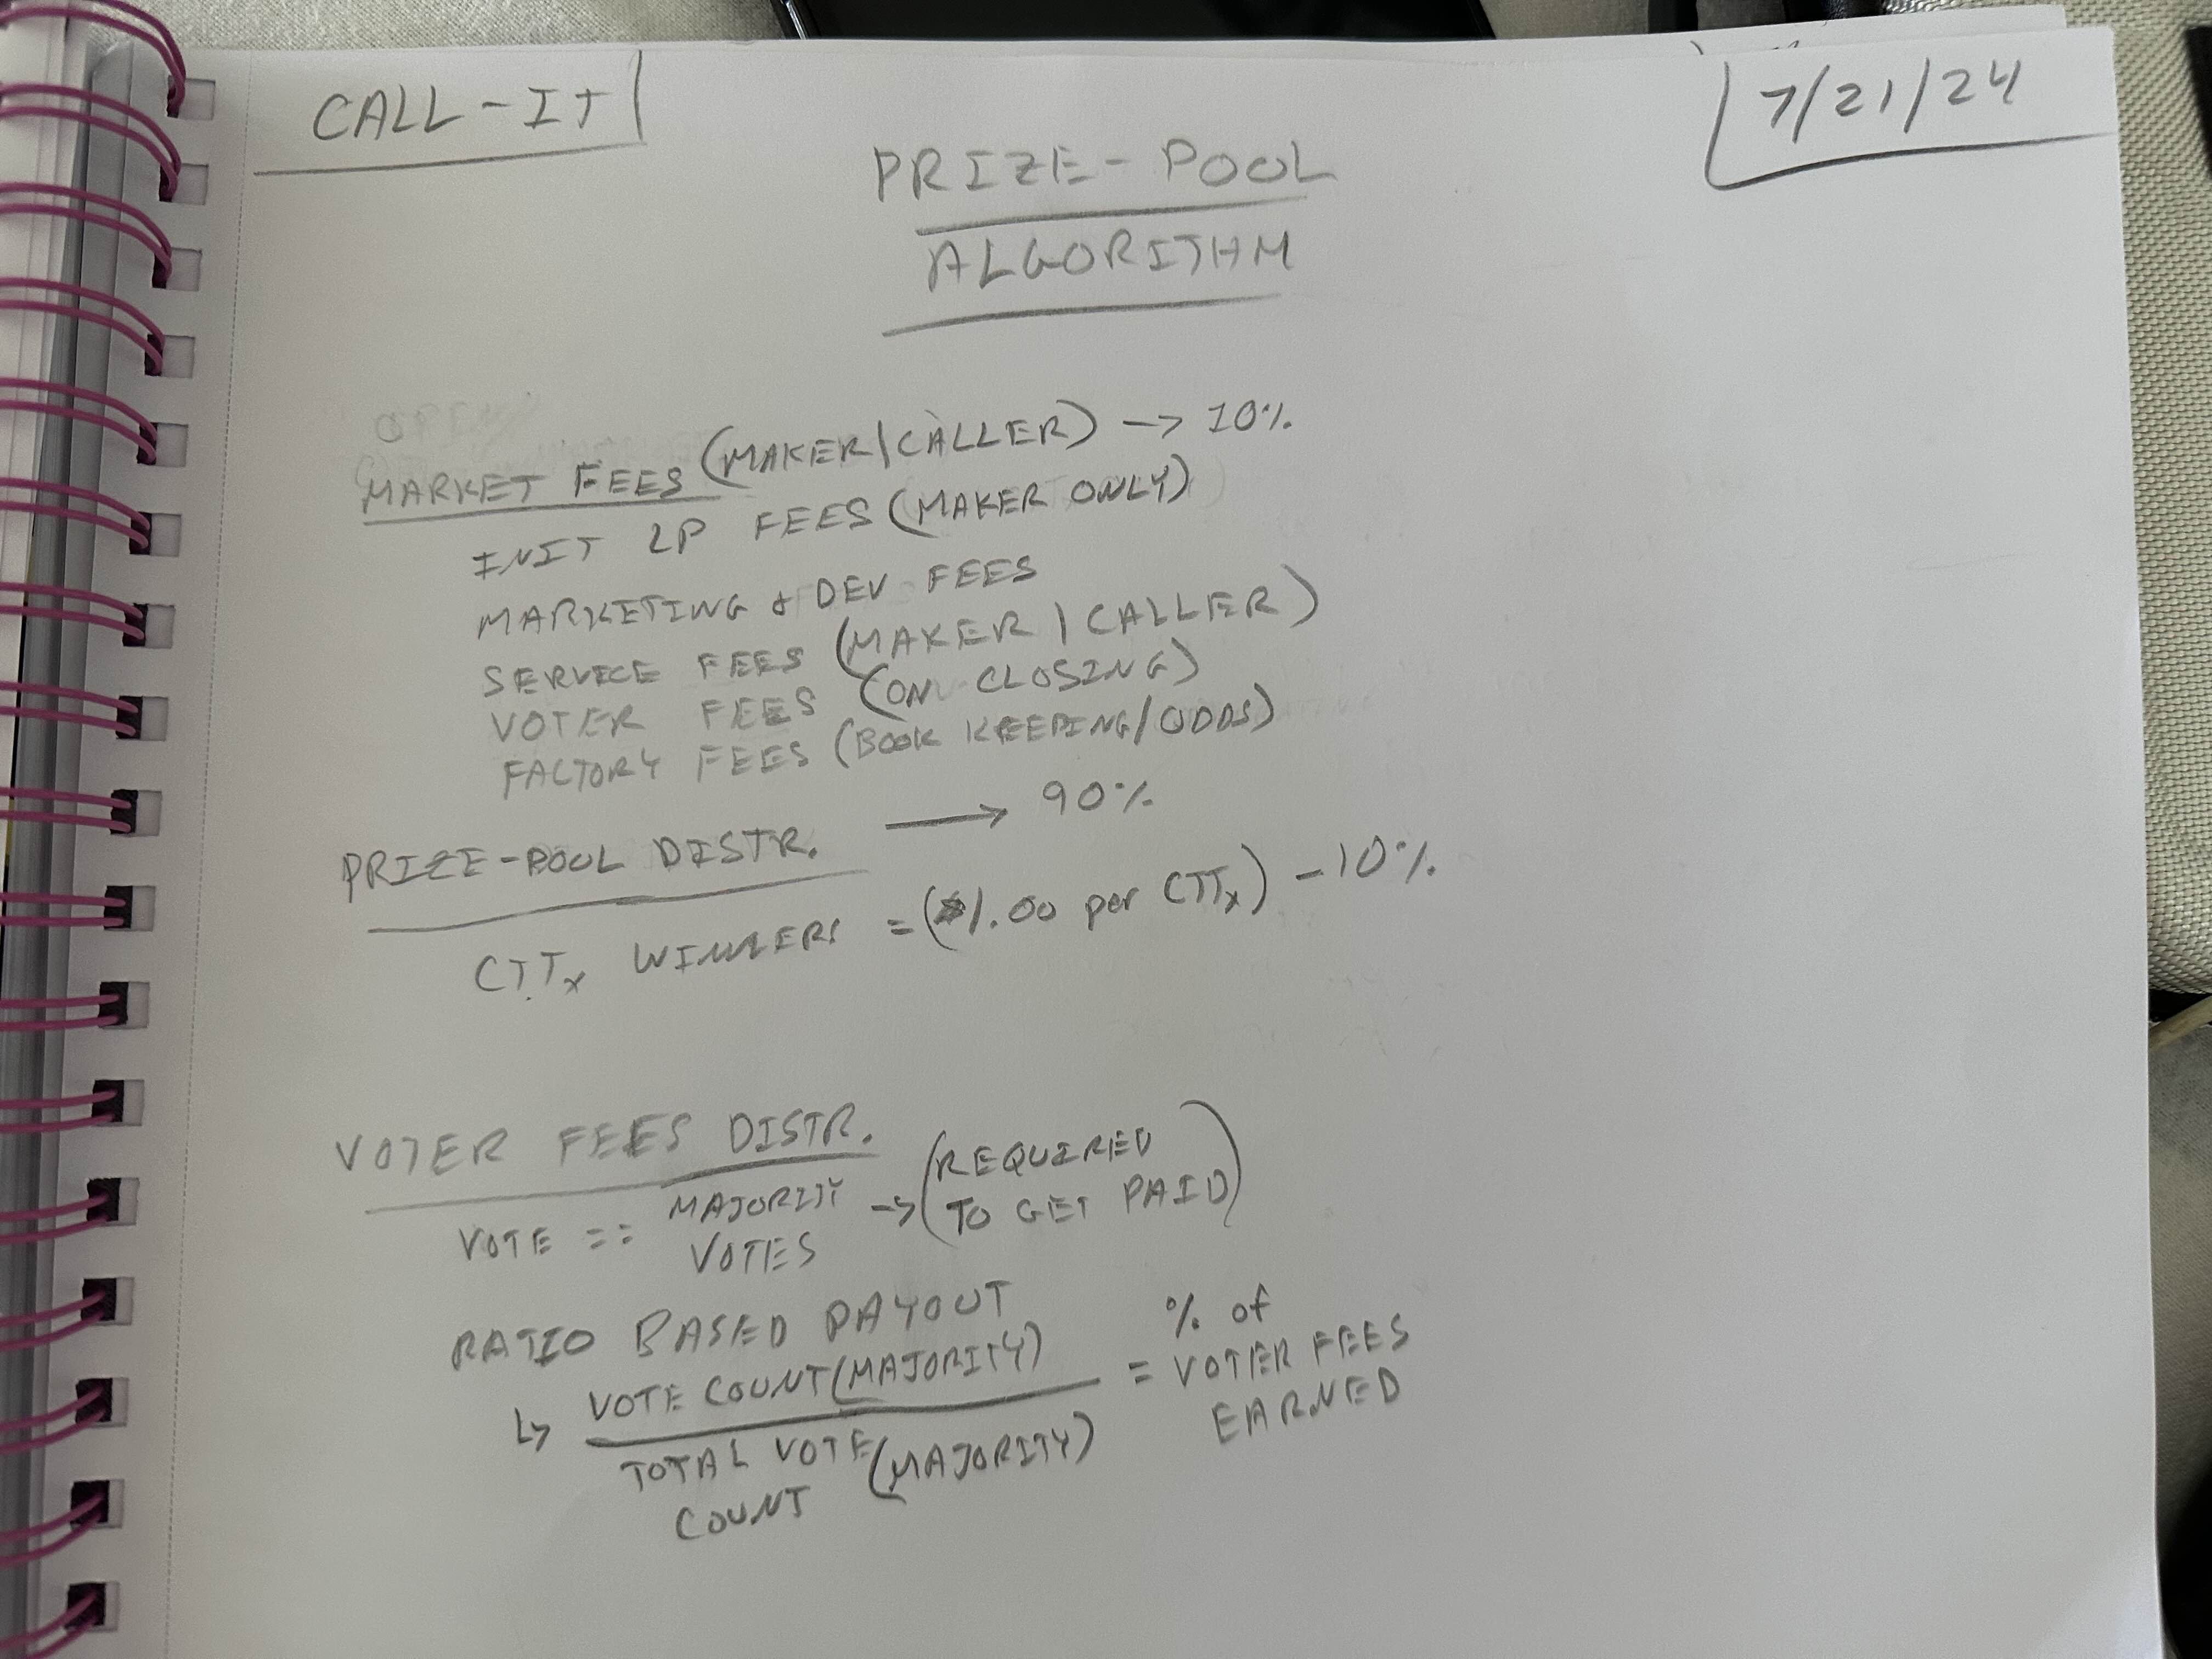 CALL-IT
7/21/24
PRIZE-POOL
ALGORITHM
MARKET FEES (MAKER|CALLER) -> 10%
INIT LP FEES (MAKER ONLY)
MARKETING & DEV FEES
SERVICE FEES (MAKER | CALLER)
VOTER FEES (ON CLOSING)
FACTORY FEES (BOOK KEEPING/ODDS)
PRIZE-POOL DISTR. → 90%
CTTx WINNERS = ($1.00 per CTTx) - 10%
VOTER FEES DISTR.
VOTE == MAJORITY VOTES -> (REQUIRED TO GET PAID)
RATIO BASED PAYOUT
↳ VOTE COUNT (MAJORITY)
TOTAL VOTE COUNT (MAJORITY)
= % of VOTER FEES EARNED